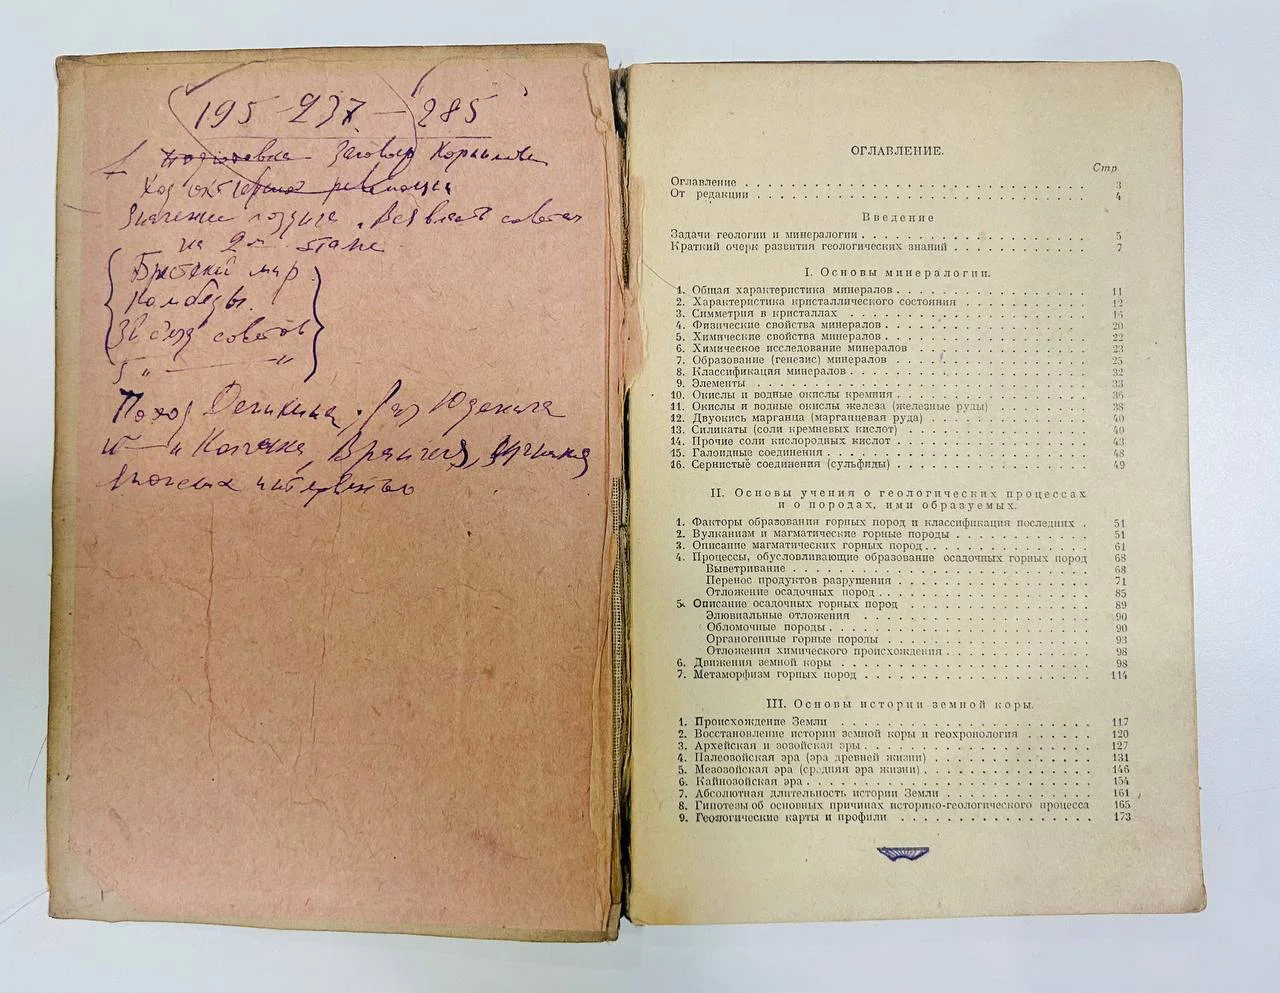 195-237-285
подготовка Заговор Корнилова
Ход октябрьской революции
Значение лозунга "Вся власть советам
на 2м этапе
Брестский мир
Комбеды.
3й съезд советов
5 " — "
Поход Деникина, Юденича
и Колчака, Врангеля,
интервенты
ОГЛАВЛЕНИЕ.
Стр.
Оглавление . . . 3
От редакции . . . 4
Введение
Задачи геологии и минералогии . . . 5
Краткий очерк развития геологических знаний . . . 7
I. Основы минералогии.
1. Общая характеристика минералов . . . 11
2. Характеристика кристаллического состояния . . . 12
3. Симметрия в кристаллах . . . 15
4. Физические свойства минералов . . . 20
5. Химические свойства минералов . . . 22
6. Химическое исследование минералов . . . 23
7. Образование (генезис) минералов . . . 25
8. Классификация минералов . . . 32
9. Элементы . . . 33
10. Окислы и водные окислы кремния . . . 36
11. Окислы и водные окислы железа (железные руды) . . . 38
12. Двуокись марганца (марганцевая руда) . . . 40
13. Силикаты (соли кремневых кислот) . . . 40
14. Прочие соли кислородных кислот . . . 43
15. Галоидные соединения . . . 48
16. Сернистые соединения (сульфиды) . . . 49
II. Основы учения о геологических процессах
и о породах, ими образуемых.
1. Факторы образования горных пород и классификация последних . 51
2. Вулканизм и магматические горные породы . . . 51
3. Описание магматических горных пород . . . 61
4. Процессы, обусловливающие образование осадочных горных пород 68
Выветривание . . . 68
Перенос продуктов разрушения . . . 71
Отложение осадочных пород . . . 85
5. Описание осадочных горных пород . . . 89
Элювиальные отложения . . . 90
Обломочные породы . . . 90
Органогенные горные породы . . . 93
Отложения химического происхождения . . . 98
6. Движения земной коры . . . 98
7. Метаморфизм горных пород . . . 114
III. Основы истории земной коры.
1. Происхождение Земли . . . 117
2. Восстановление истории земной коры и геохронология . . . 120
3. Архейская и эозойская эры . . . 127
4. Палеозойская эра (эра древней жизни) . . . 131
5. Мезозойская эра (средняя эра жизни) . . . 146
6. Кайнозойская эра . . . 154
7. Абсолютная длительность истории Земли . . . 161
8. Гипотезы об основных причинах историко-геологического процесса 165
9. Геологические карты и профили . . . 173